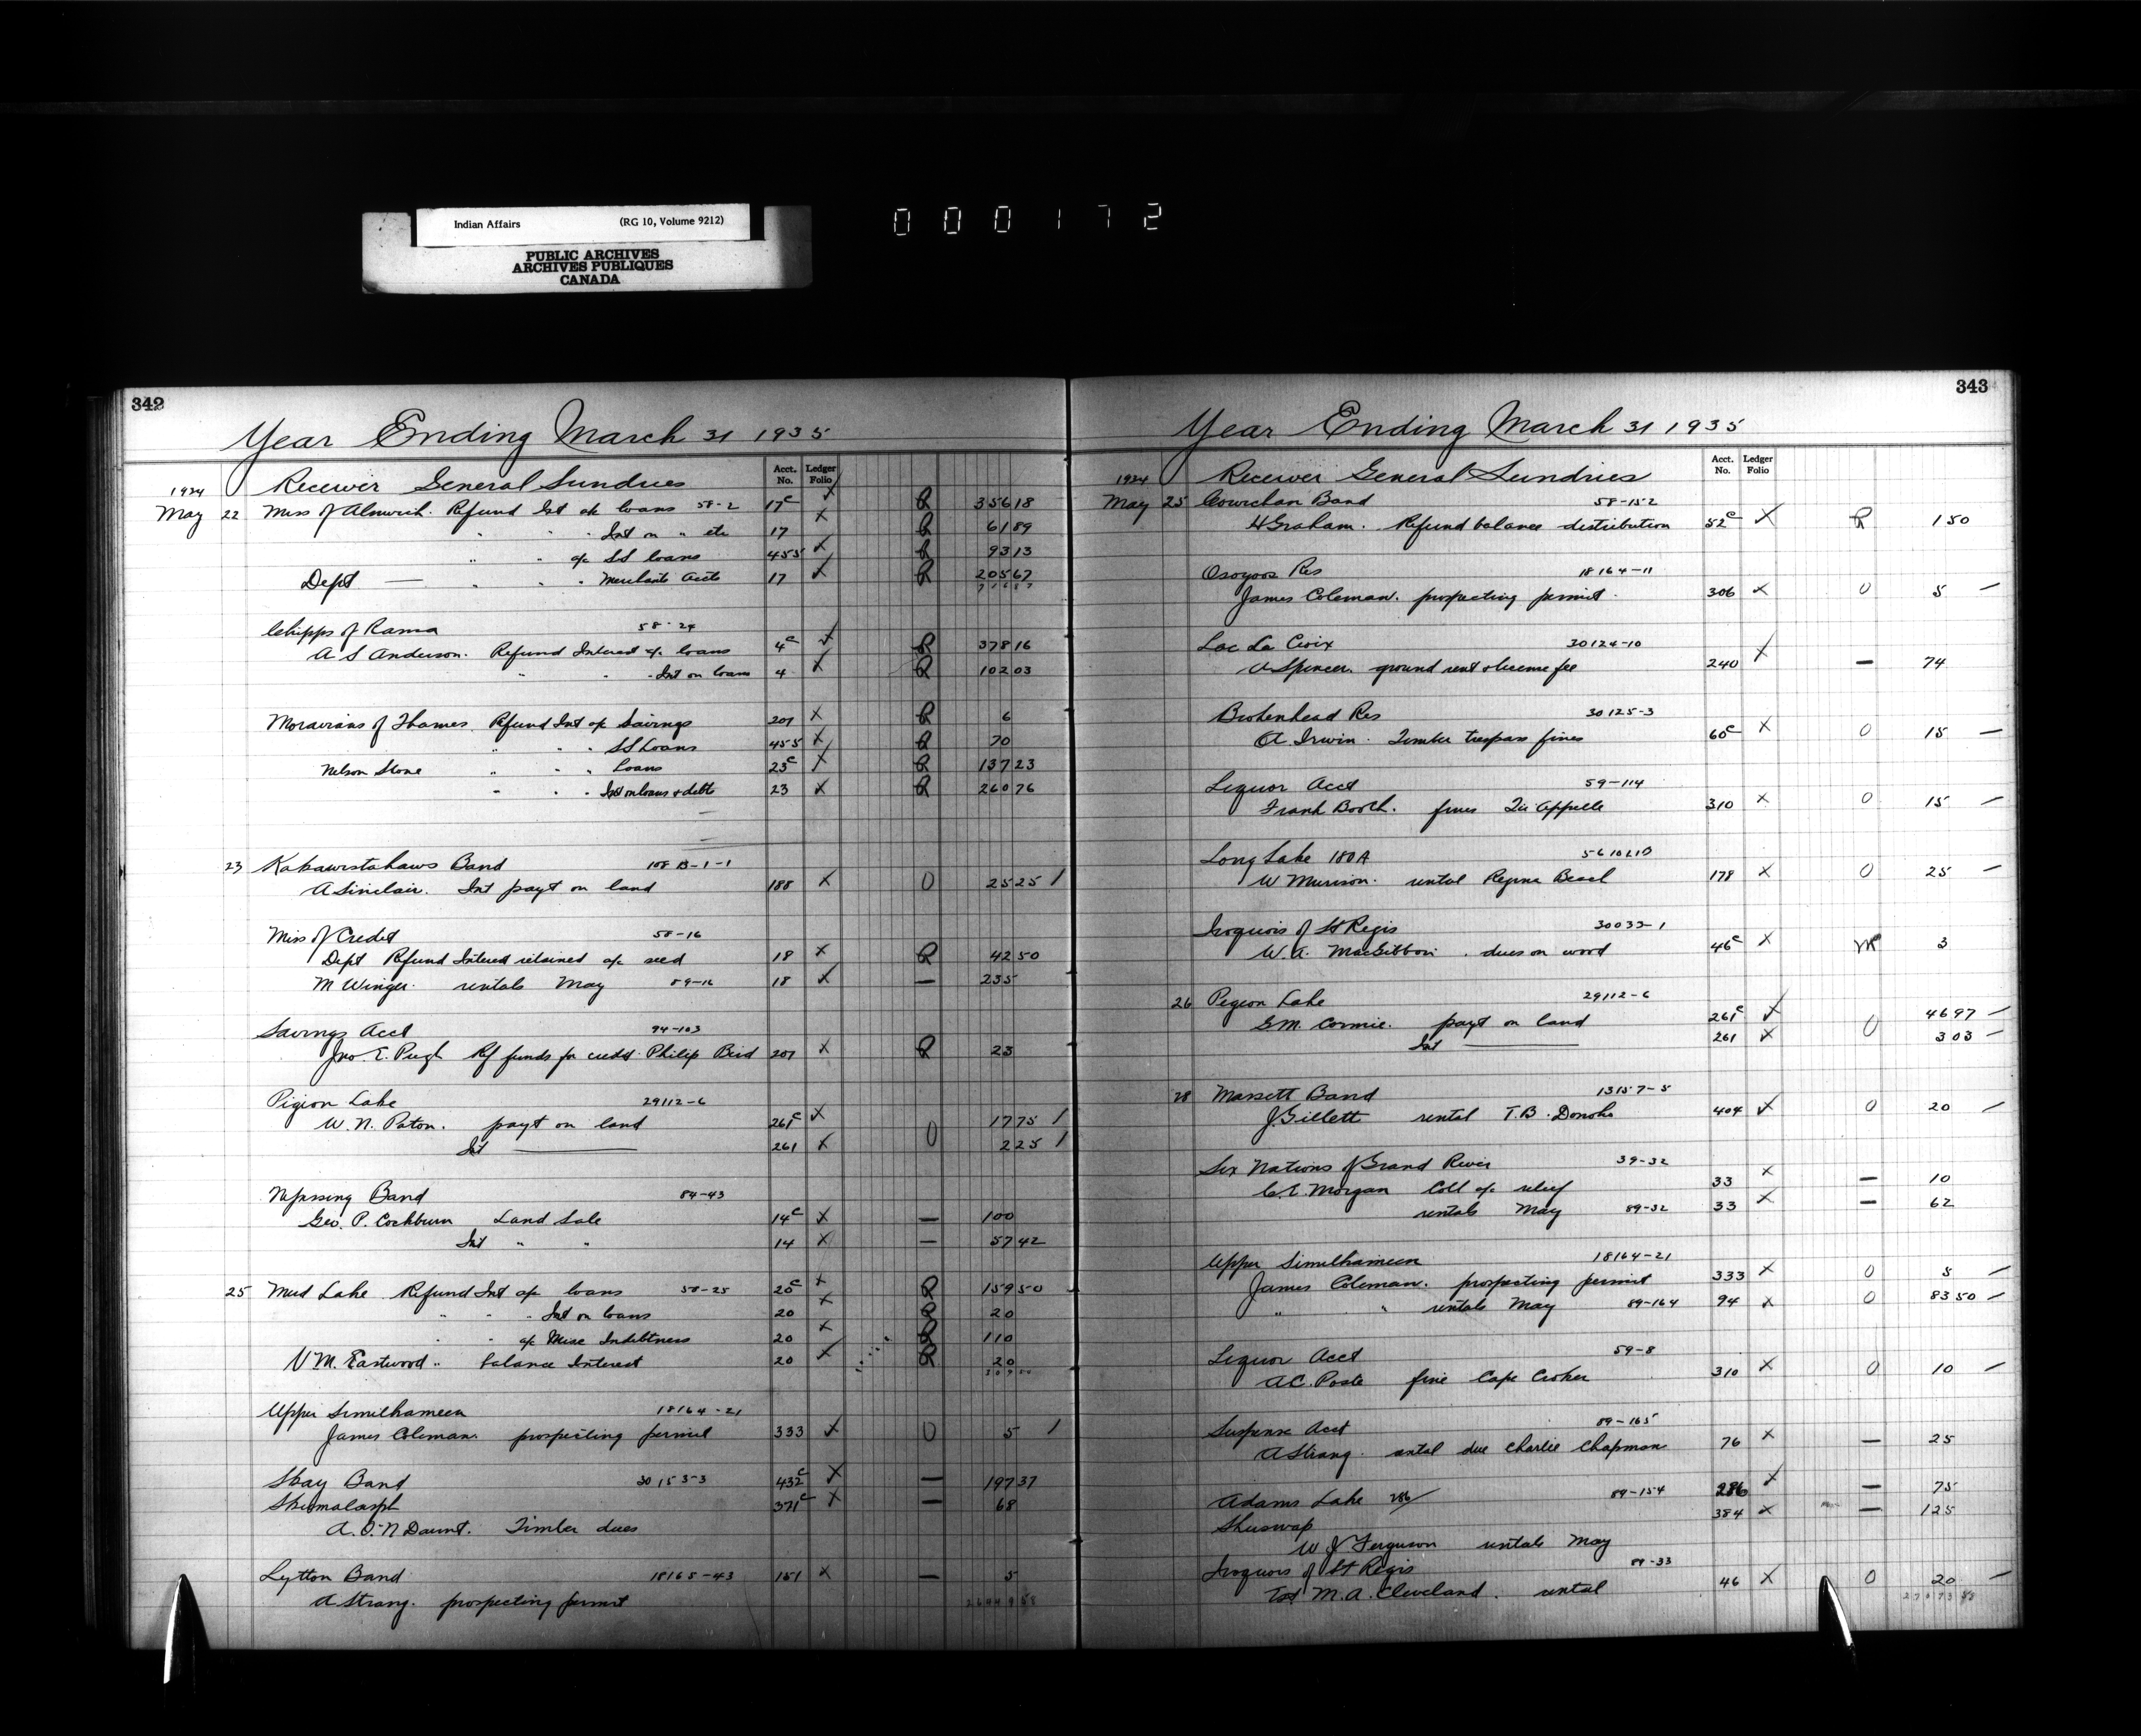 Indian Affairs (RG 10, Volume 9212)
PUBLIC ARCHIVES
ARCHIVES PUBLIQUES
CANADA
000172
342
Year Ending March 31 1935
Acct. No. Ledger Folio
1934 Receiver General Sundries
May 22 Miss of Alnwick. Refund Int a/c loans 58-2 17c R 356 18
" " Int on " etc 17 R 61 89
" " a/c SS loans 455 R 93 13
Dept — " " " Merchants Accts 17 R 205 67
Chipps of Rama 58-24
A S Anderson. Refund Interest a/c loans 4c R 378 16
" " Int on loans 4 R 102 03
Moravians of Thames. Refund Int a/c Savings 201 R 6
" " " SS Loans 455 R 70
Nelson Stone " " " Loans 23c R 137 23
" " " Int on loans & debts 23 R 260 76
23 Kakawistahaws Band 108 B-1-1
A Sinclair. Int payt on land 188 0 25 25 /
Miss of Credit 58-16
Dept Refund Interest retained a/c seed 18 R 42 50
M Winger. rentals May 89-16 18 — 235
Savings Acct 94-103
Jno E. Pugh Rf funds for credit Philip Bird 201 R 23
Pigeon Lake 29112-6
W. N. Paton. payt on land 261c 0 17 75 /
Int — 261 2 25 /
Nipissing Band 84-43
Geo. P. Cockburn Land Sale 14c — 100
Int " " 14 — 57 42
25 Mud Lake Refund Int a/c loans 58-25 20c R 159 50
" " " Int on loans 20 R 20
" " a/c Misc Indebtness 20 R 110
V M. Eastwood " balance Interest 20 R 20
Upper Similkameen 18164-21
James Coleman. prospecting permit 333 0 5 /
Skay Band 30153-3 432c — 197 37
371c — 68
A. O'N Daunt. Timber dues
Lytton Band 18165-43 151 — 5
A Strang. prospecting permit
343
Year Ending March 31 1935
Acct. No. Ledger Folio
1934 Receiver General Sundries
May 25 Cowichan Band 58-152
H Graham. Refund balance distribution 52c R 1 50
Osoyoos Res 18164-11
James Coleman. prospecting permit 306 0 5 —
Lac La Croix 30124-10
A Spencer. ground rent & license fee 240 — 74
Brokenhead Res 30125-3
A. Irwin. Timber trespass fines 60c 0 15 —
Liquor Acct 59-114
Frank Booth. fines Qu'Appelle 310 0 15 —
Long Lake 180A
W Murison. rental Regina Beach 178 0 25 —
Iroquois of St Regis 30033-1
W. A. MacGibbon. dues on wood 46c 3
26 Pigeon Lake 29112-6
G M. Cormie. payt on land 261c 0 46 97 —
Int — 261 3 03 —
28 Massett Band 13157-5
J. Gillett rental T.B. Donoho 404 0 20 —
Six Nations of Grand River 39-32
C. E. Morgan Coll a/c relief 33 — 10
rentals May 89-32 33 — 62
Upper Similkameen 18164-21
James Coleman. prospecting permit 333 0 5 —
" " rentals May 89-164 94 0 83 50 —
Liquor Acct 59-8
A C. Poste fine Cape Croker 310 0 10 —
Suspense Acct 89-165
A Strang. rental due Charlie Chapman 76 — 25
Adams Lake 286/ 89-154 286 — 75
Shuswap 384 — 125
W J Ferguson rentals May
Iroquois of St Regis 89-33
M. A. Cleveland. rental 46 0 20 —